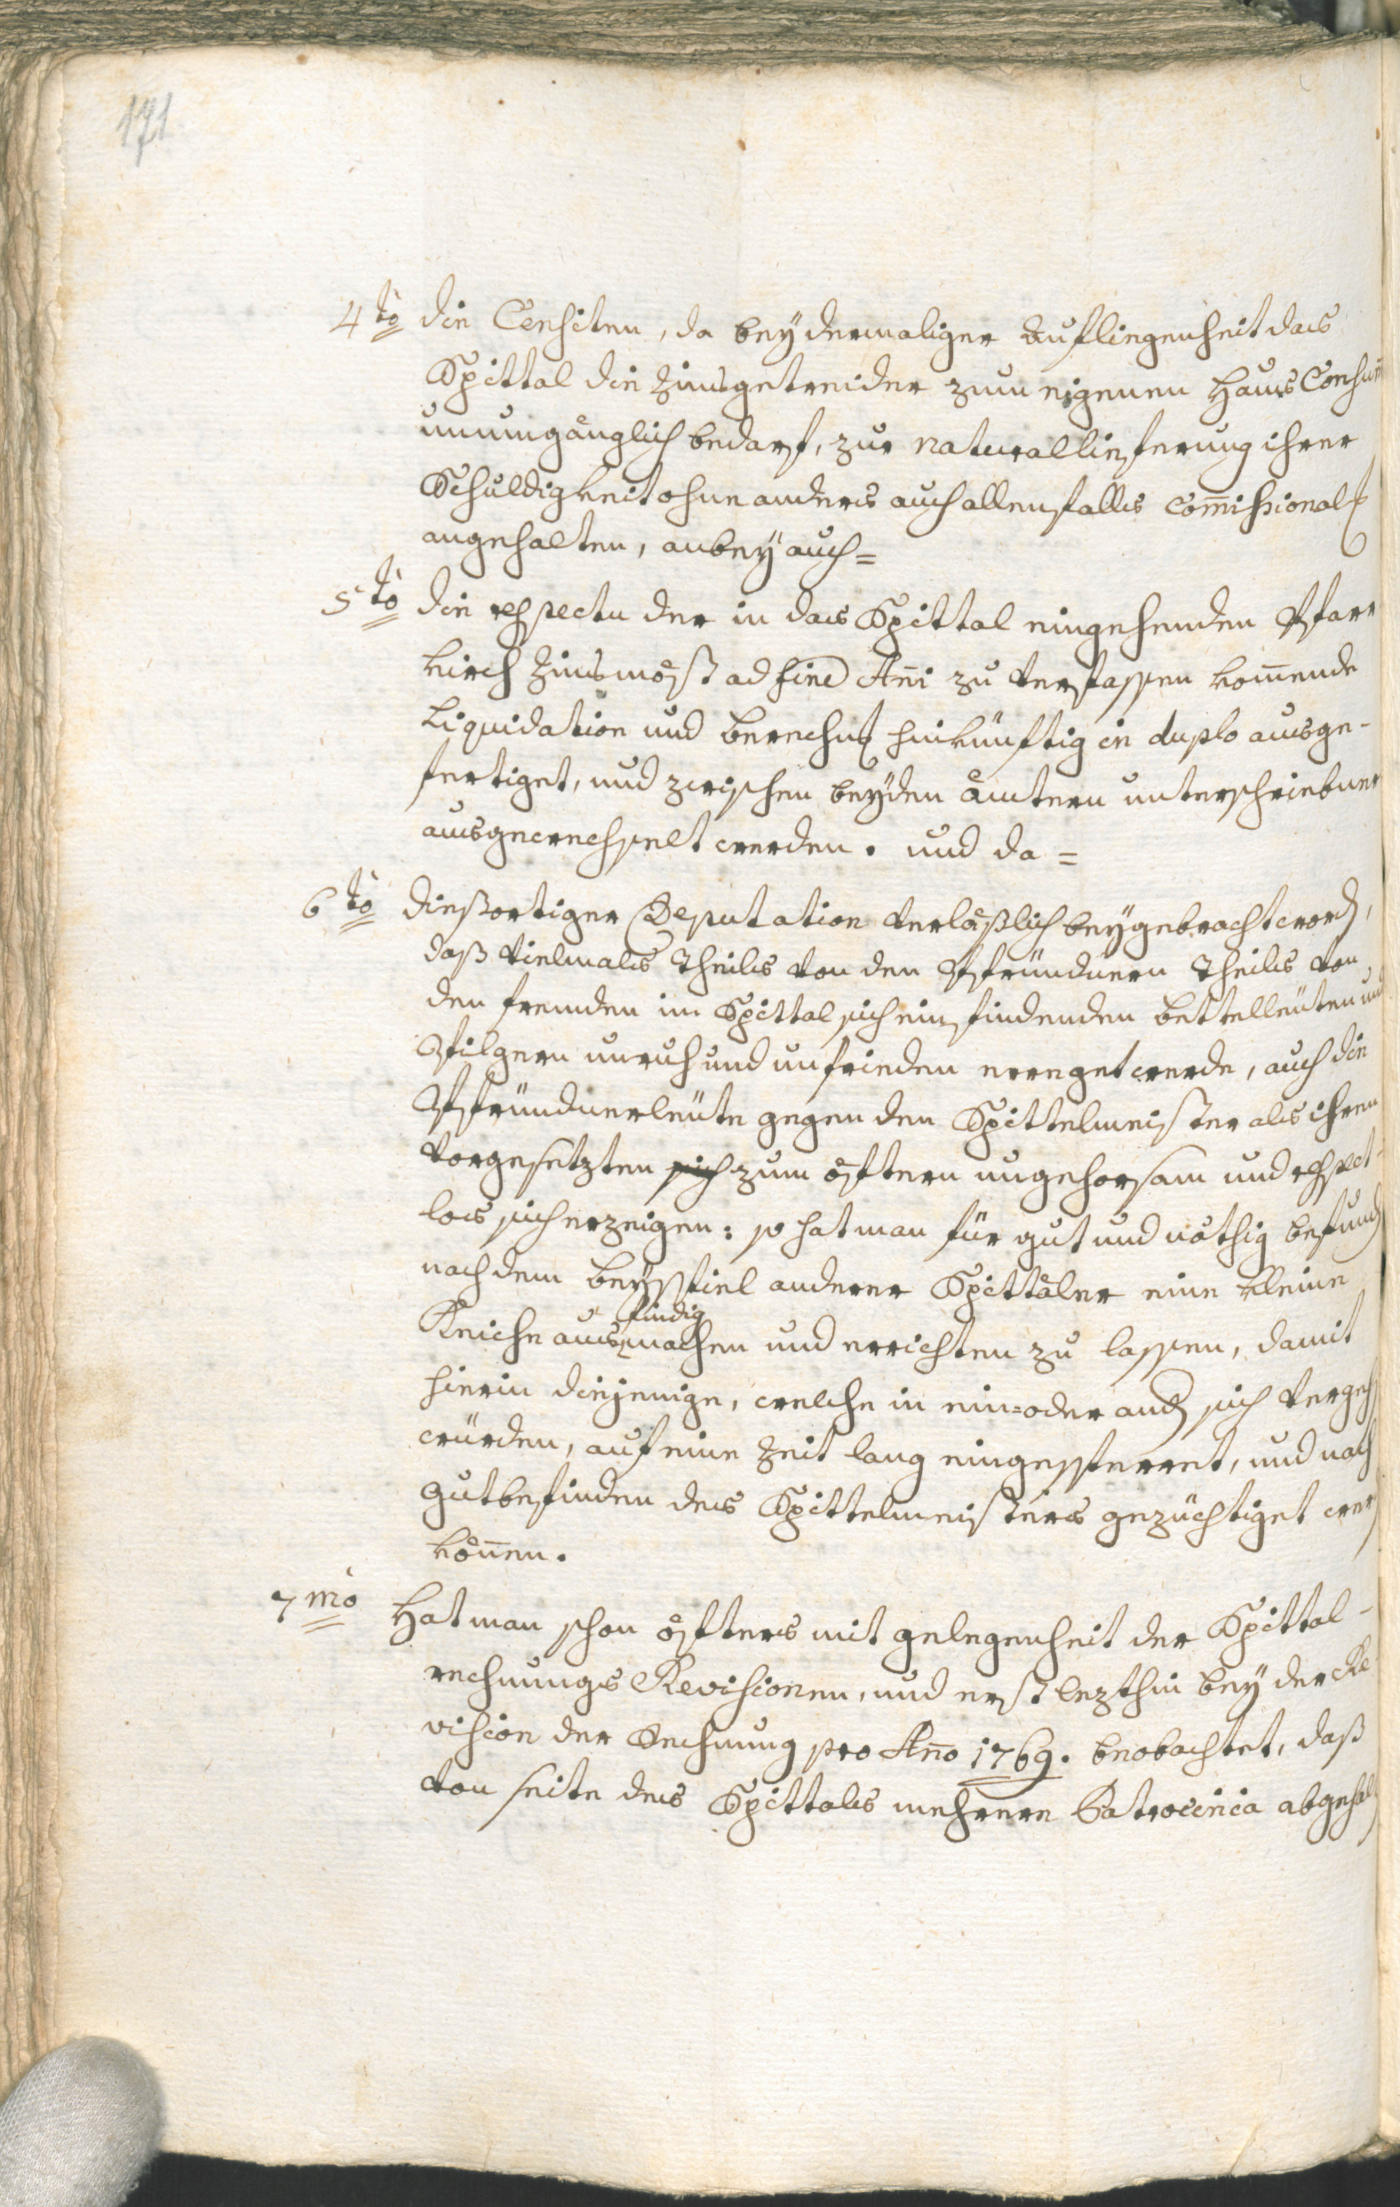 171
4to die Censiten, da bey dermaliger Aufliegenheit das
Spittal die Zinsgetreider zum eigenen Haus Consum
unumgänglich bedarf, zur naturallieferung ihrer
Schuldigkeit ohne anders auch allenfalls com̅issional
angehalten, anbey auch=
5to die respectu der in das Spittal eingehenden Pfarr
kirch Zinsmösst ad fine An̅i zu verfassen kom̅ende
Liquidation und berechn hinkünftig in duplo ausge-
fertiget, und zwischen beyden ämtern unterschriebner
ausgewechselt werden. und da=
6to dießortiger Deputation verläßlich beygebracht word,
daß vielmals theils von den Pfründnern theils von
den fremden im Spittal sich einfindenden bettelleüten und
Pilgern unruh und unfrieden erreget werde, auch die
Pfründnerleüte gegen den Spittelmeister als ihren
vorgesetzten sich zum öftern ungehorsam und respect-
los sich erzeigen: so hat man für gut und nöthig befund
nach dem beyspiel anderer Spittäler eine kleine
findig
Keiche ausmachen und errichten zu lassen, damit
hierin diejenige, welche in ein= oder and sich vergeh
würden, auf eine Zeit lang eingesperret, und nach
gutbefinden des Spittelmeisters gezüchtiget wer
kön̅en.
7mo Hat man schon öfters mit gelegenheit der Spittal-
rechnungs Revisionen, und erst lezthin bey der Re
vision der Rechnung pro An̅o 1769. beobachtet, daß
von seite des Spittals mehrere Patrocinia abgehal